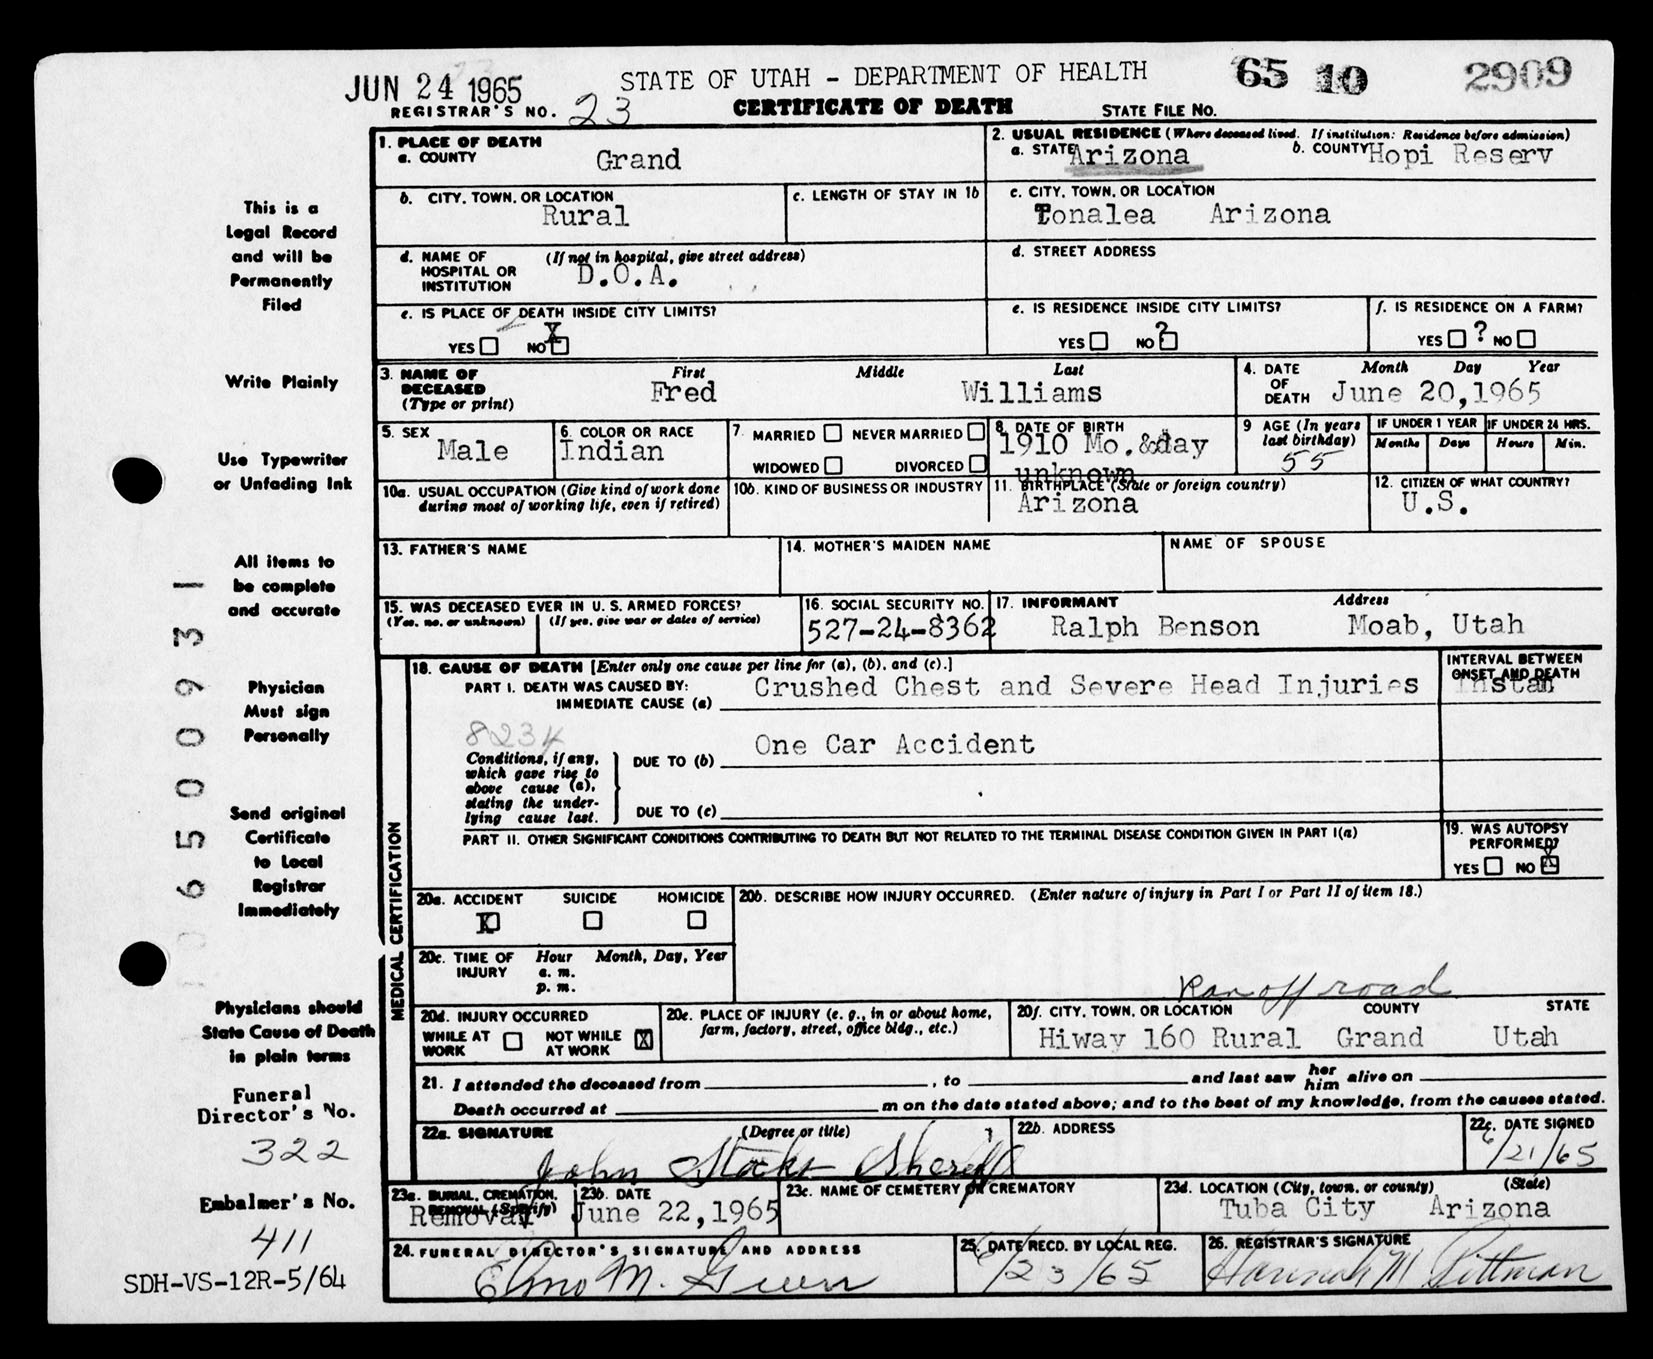 JUN 24 1965
STATE OF UTAH - DEPARTMENT OF HEALTH
65 10 2909
REGISTRAR'S NO. 23
CERTIFICATE OF DEATH
STATE FILE NO.
This is a
Legal Record
and will be
Permanently
Filed
Write Plainly
Use Typewriter
or Unfading Ink
All items to
be complete
and accurate
Physician
Must sign
Personally
Send original
Certificate
to Local
Registrar
Immediately
Physicians should
State Cause of Death
in plain terms
Funeral
Director's No.
322
Embalmer's No.
411
SDH-VS-12R-5/64
06500931
1. PLACE OF DEATH
a. COUNTY Grand
2. USUAL RESIDENCE (Where deceased lived. If institution: Residence before admission)
a. STATE Arizona b. COUNTY Hopi Reserv
b. CITY, TOWN, OR LOCATION Rural
c. LENGTH OF STAY IN 1b
c. CITY, TOWN, OR LOCATION
Tonalea Arizona
d. NAME OF HOSPITAL OR INSTITUTION (If not in hospital, give street address)
D.O.A.
d. STREET ADDRESS
e. IS PLACE OF DEATH INSIDE CITY LIMITS?
YES NO X
e. IS RESIDENCE INSIDE CITY LIMITS?
YES NO ?
f. IS RESIDENCE ON A FARM?
YES ? NO
3. NAME OF DECEASED (Type or print)
First Middle Last
Fred Williams
4. DATE OF DEATH Month Day Year
June 20,1965
5. SEX
Male
6. COLOR OR RACE
Indian
7. MARRIED NEVER MARRIED
WIDOWED DIVORCED
8. DATE OF BIRTH
1910 Mo.&day
unknown
9 AGE (In years last birthday)
55
IF UNDER 1 YEAR
Months Days
IF UNDER 24 HRS.
Hours Min.
10a. USUAL OCCUPATION (Give kind of work done during most of working life, even if retired)
10b. KIND OF BUSINESS OR INDUSTRY
11. BIRTHPLACE (State or foreign country)
Arizona
12. CITIZEN OF WHAT COUNTRY?
U.S.
13. FATHER'S NAME
14. MOTHER'S MAIDEN NAME
NAME OF SPOUSE
15. WAS DECEASED EVER IN U. S. ARMED FORCES?
(Yes, no, or unknown) (If yes, give war or dates of service)
16. SOCIAL SECURITY NO.
527-24-8362
17. INFORMANT Address
Ralph Benson Moab, Utah
MEDICAL CERTIFICATION
18. CAUSE OF DEATH [Enter only one cause per line for (a), (b), and (c).]
PART I. DEATH WAS CAUSED BY:
IMMEDIATE CAUSE (a) Crushed Chest and Severe Head Injuries
INTERVAL BETWEEN ONSET AND DEATH
Instan
8234
Conditions, if any, which gave rise to above cause (a), stating the underlying cause last.
DUE TO (b) One Car Accident
DUE TO (c)
PART II. OTHER SIGNIFICANT CONDITIONS CONTRIBUTING TO DEATH BUT NOT RELATED TO THE TERMINAL DISEASE CONDITION GIVEN IN PART I(a)
19. WAS AUTOPSY PERFORMED?
YES NO X
20a. ACCIDENT SUICIDE HOMICIDE
X
20b. DESCRIBE HOW INJURY OCCURRED. (Enter nature of injury in Part I or Part II of item 18.)
Ran off road
20c. TIME OF INJURY Hour Month, Day, Year
a. m.
p. m.
20d. INJURY OCCURRED
WHILE AT WORK NOT WHILE AT WORK X
20e. PLACE OF INJURY (e. g., in or about home, farm, factory, street, office bldg., etc.)
20f. CITY, TOWN, OR LOCATION COUNTY STATE
Hiway 160 Rural Grand Utah
21. I attended the deceased from , to and last saw her him alive on
Death occurred at m on the date stated above; and to the best of my knowledge, from the causes stated.
22a. SIGNATURE (Degree or title)
John Stocks Sheriff
22b. ADDRESS
22c. DATE SIGNED
6/21/65
23a. BURIAL, CREMATION, REMOVAL (Specify)
Removal
23b. DATE
June 22,1965
23c. NAME OF CEMETERY OR CREMATORY
23d. LOCATION (City, town, or county) (State)
Tuba City Arizona
24. FUNERAL DIRECTOR'S SIGNATURE AND ADDRESS
Elmo M. Green
25. DATE RECD. BY LOCAL REG.
6/23/65
26. REGISTRAR'S SIGNATURE
Hannah M Pittman